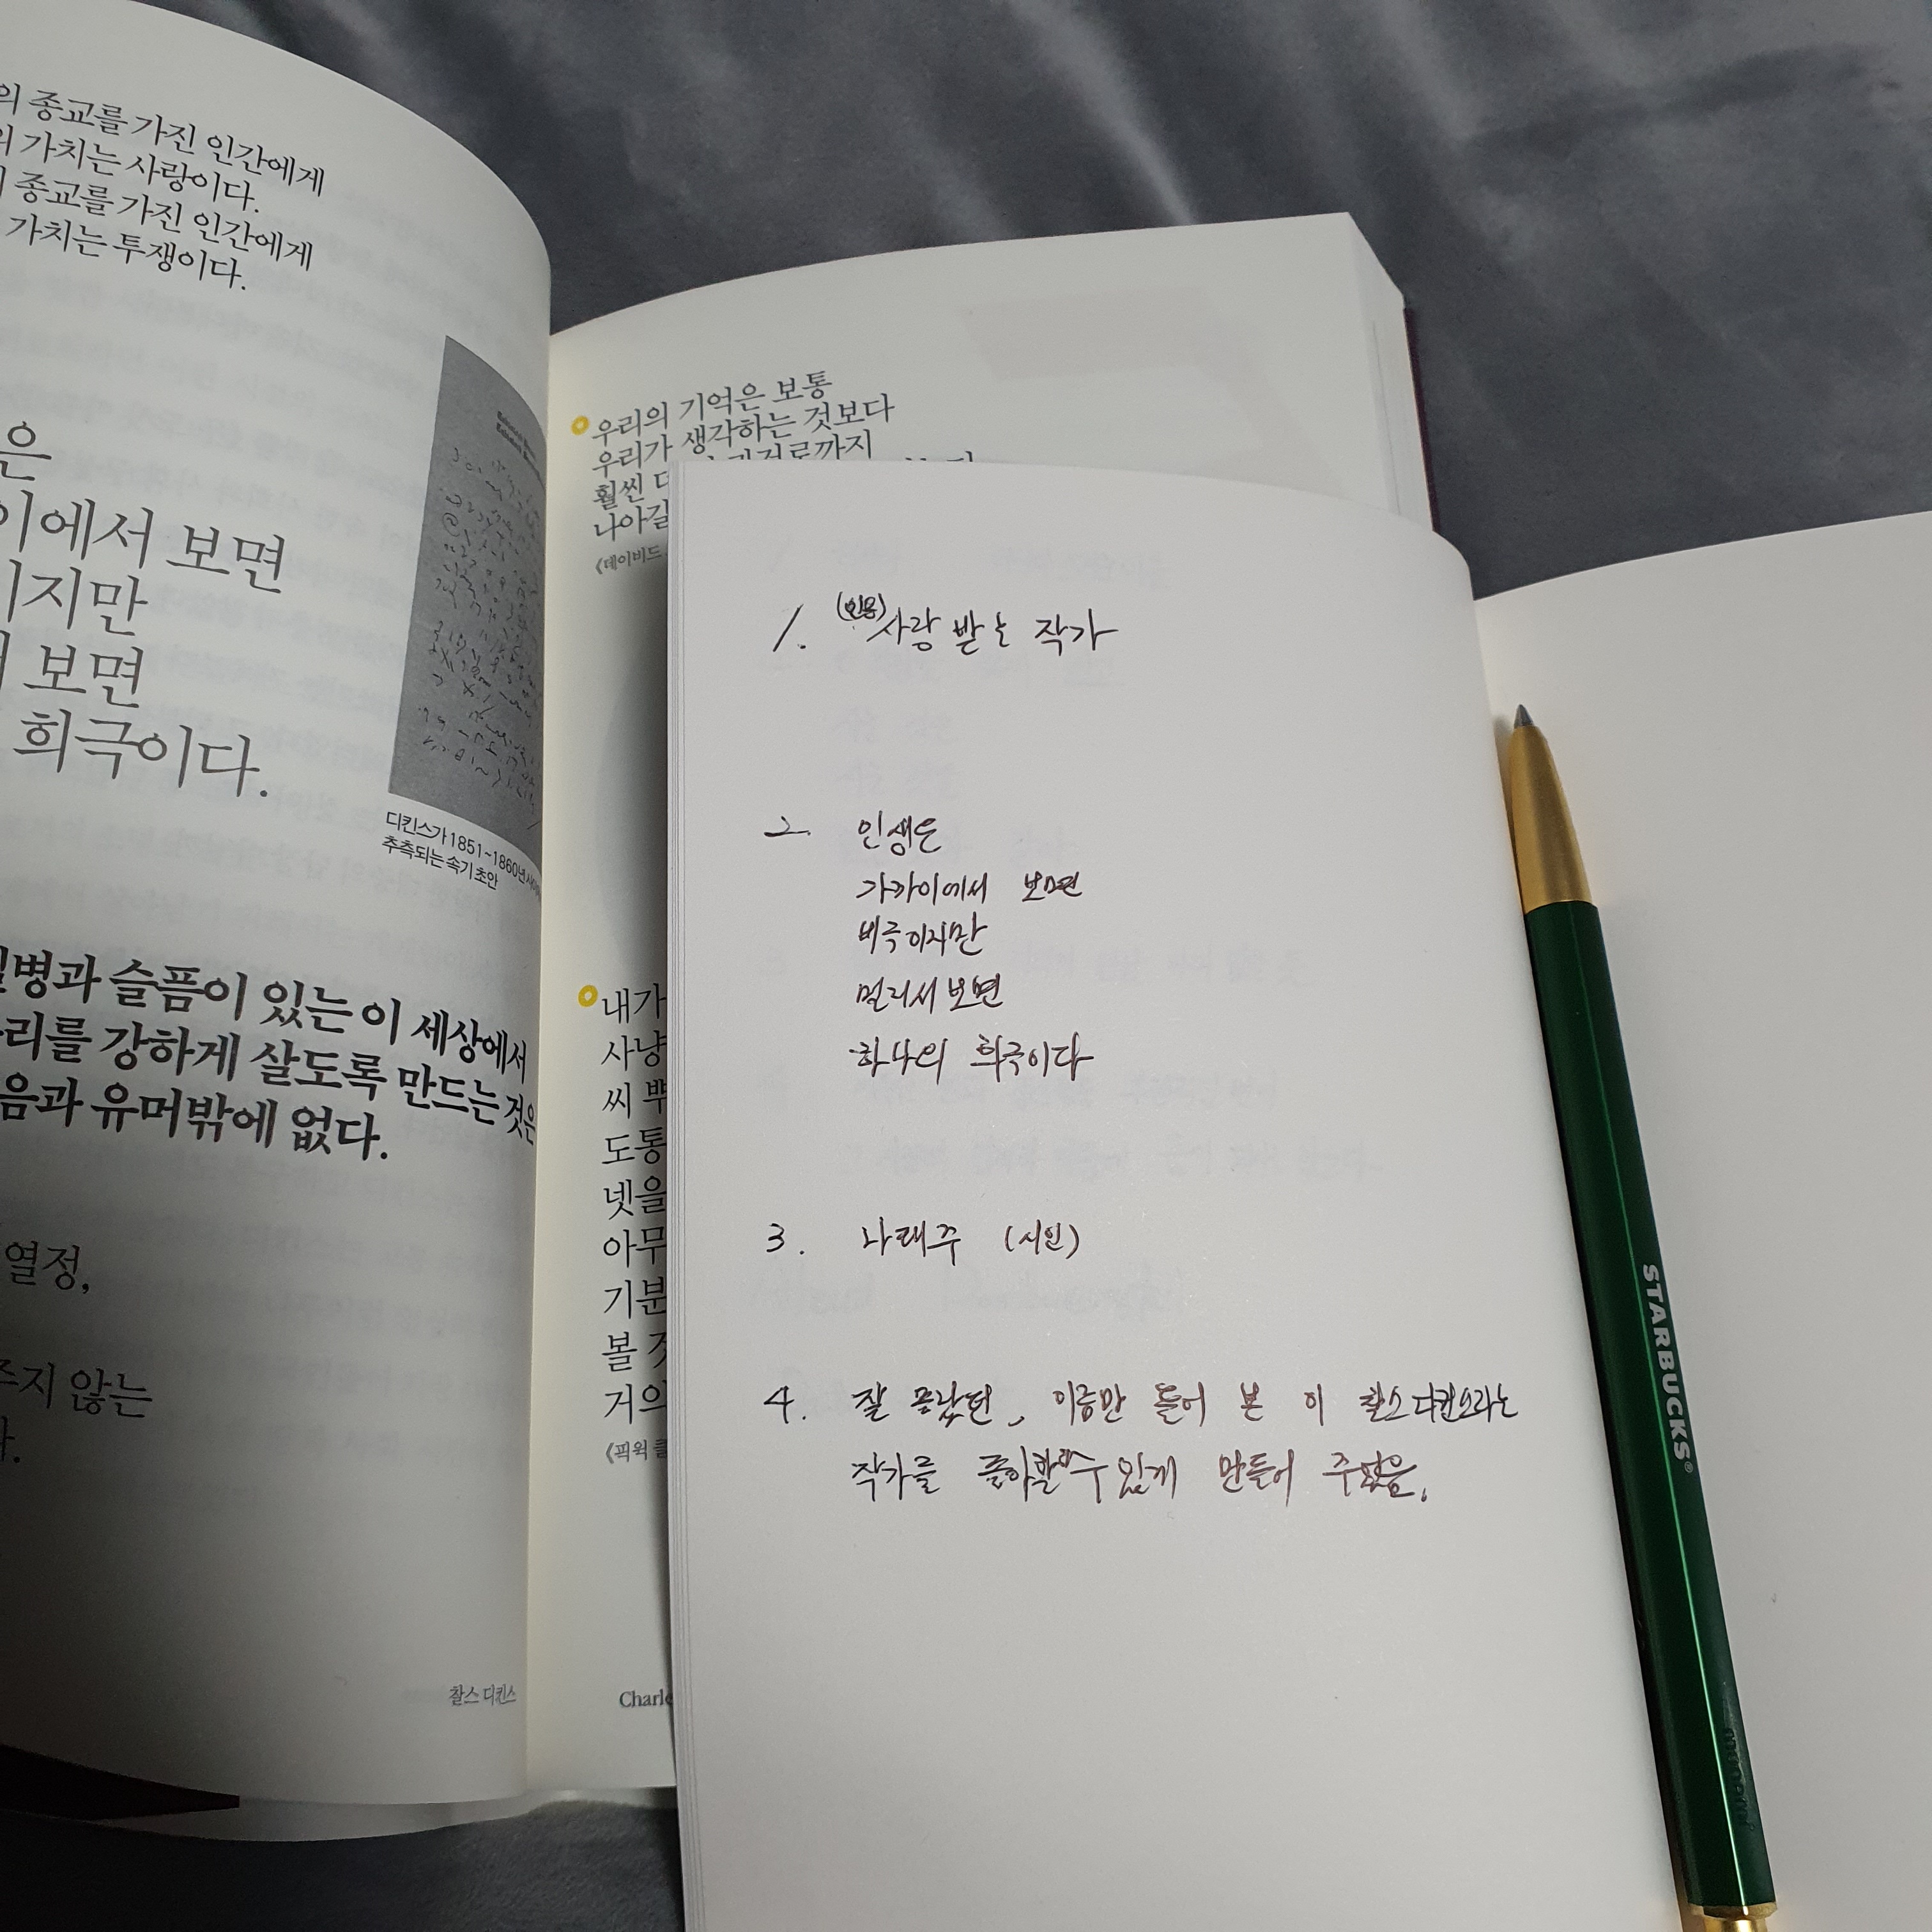 의 종교를 가진 인간에게
가치는 사랑이다.
종교를 가진 인간에게
가치는 투쟁이다.
은
이에서 보면
이지만
보면
희극이다.
디킨스가 1851~1860년
추측되는 속기 초안
질병과 슬픔이 있는 이 세상에서
우리를 강하게 살도록 만드는 것은
웃음과 유머밖에 없다.
열정,
주지 않는
찰스 디킨스
우리의 기억은 보통
우리가 생각하는 것보다
훨씬 과거로까지
나아길
《데이비드
내가
사냥
씨 뿌
도통
넷을
아무
기분
볼 것
거의
《픽윅 클
Charle
1. (인용) 사랑 받는 작가
2. 인생은
가까이에서 보면
비극이지만
멀리서 보면
하나의 희극이다
3. 나태주 (시인)
4. 잘 몰랐던, 이름만 들어 본 이 찰스 디킨스라는
작가를 좋아할 수 있게 만들어 주었음.
STARBUCKS®